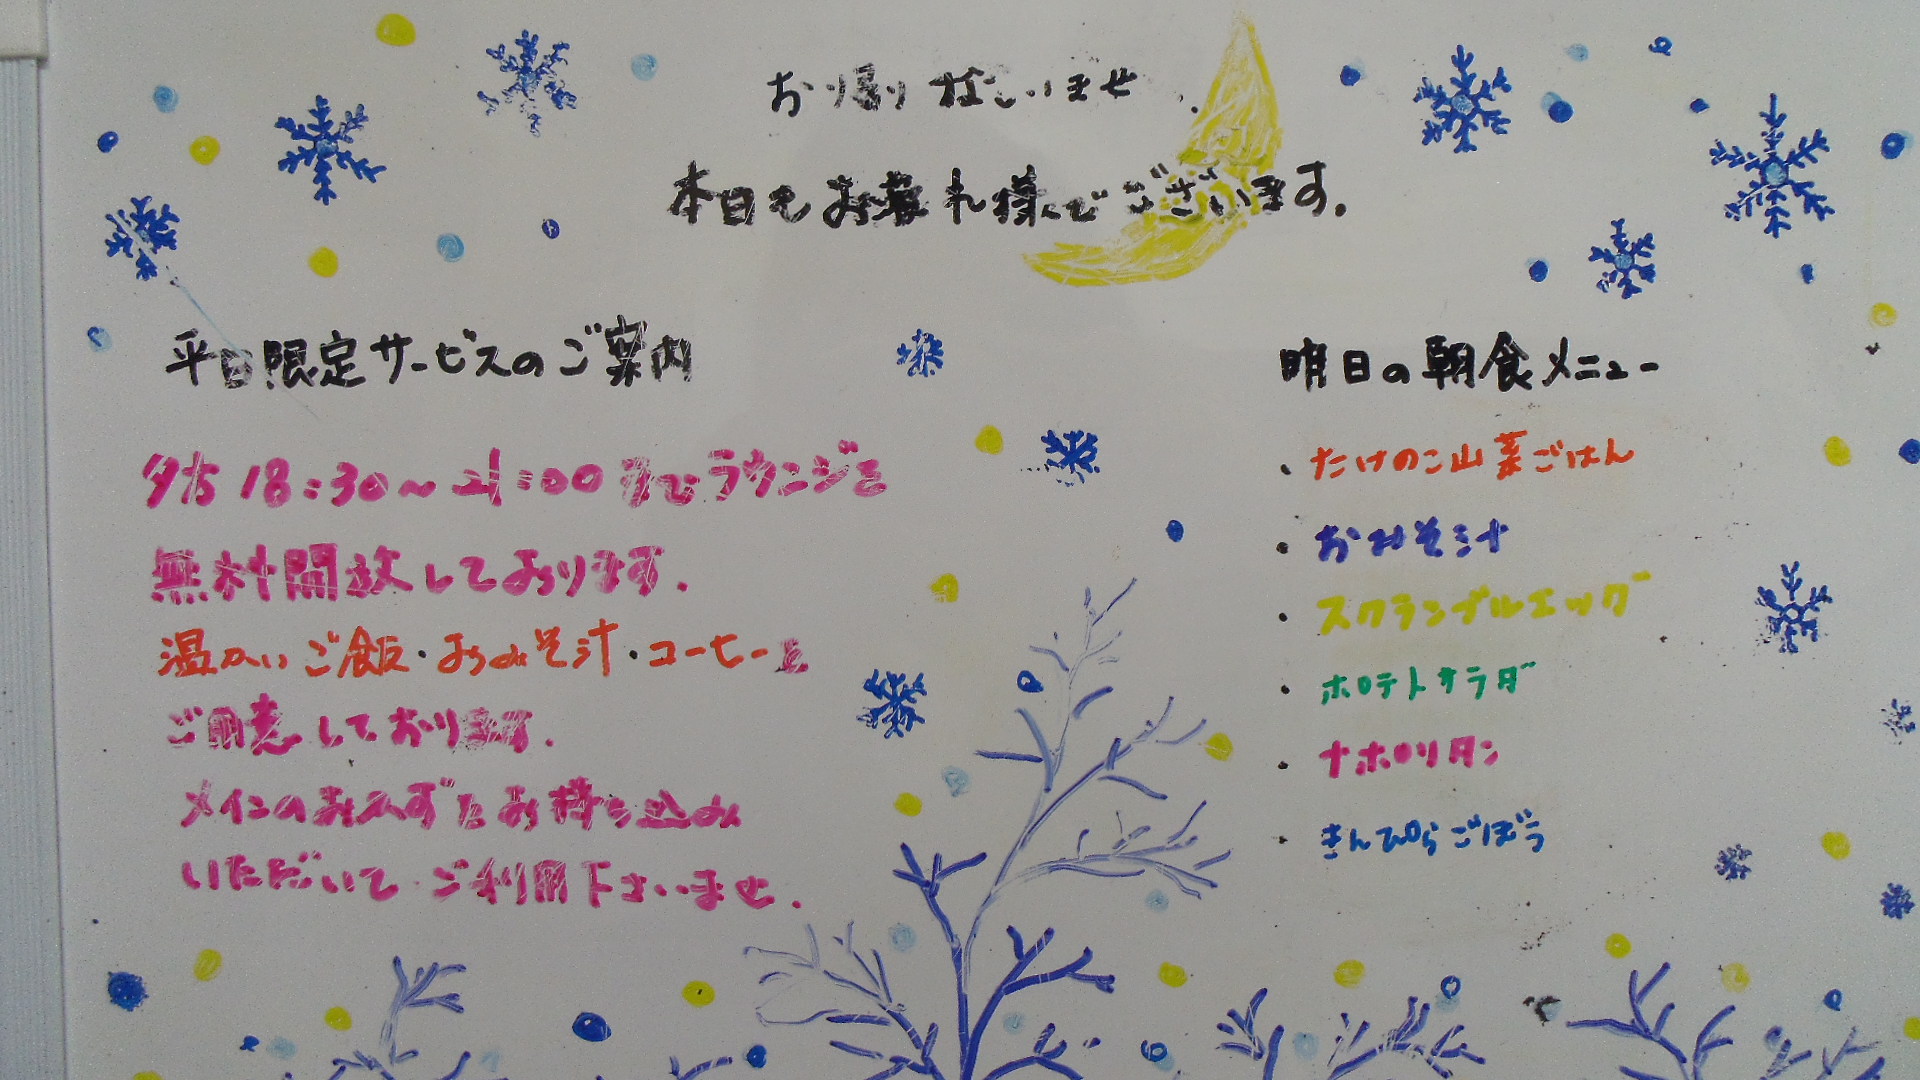 お帰りなさいませ
本日もお疲れ様でございます。
平日限定サービスのご案内
夕方18:30〜21:00までラウンジを
無料開放しております。
温かいご飯・おみそ汁・コーヒーを
ご用意しております。
メインのおかずをお持ち込み
いただいてご利用下さいませ。
明日の朝食メニュー
・たけのこ山菜ごはん
・おみそ汁
・スクランブルエッグ
・ポテトサラダ
・ナポリタン
・きんぴらごぼう